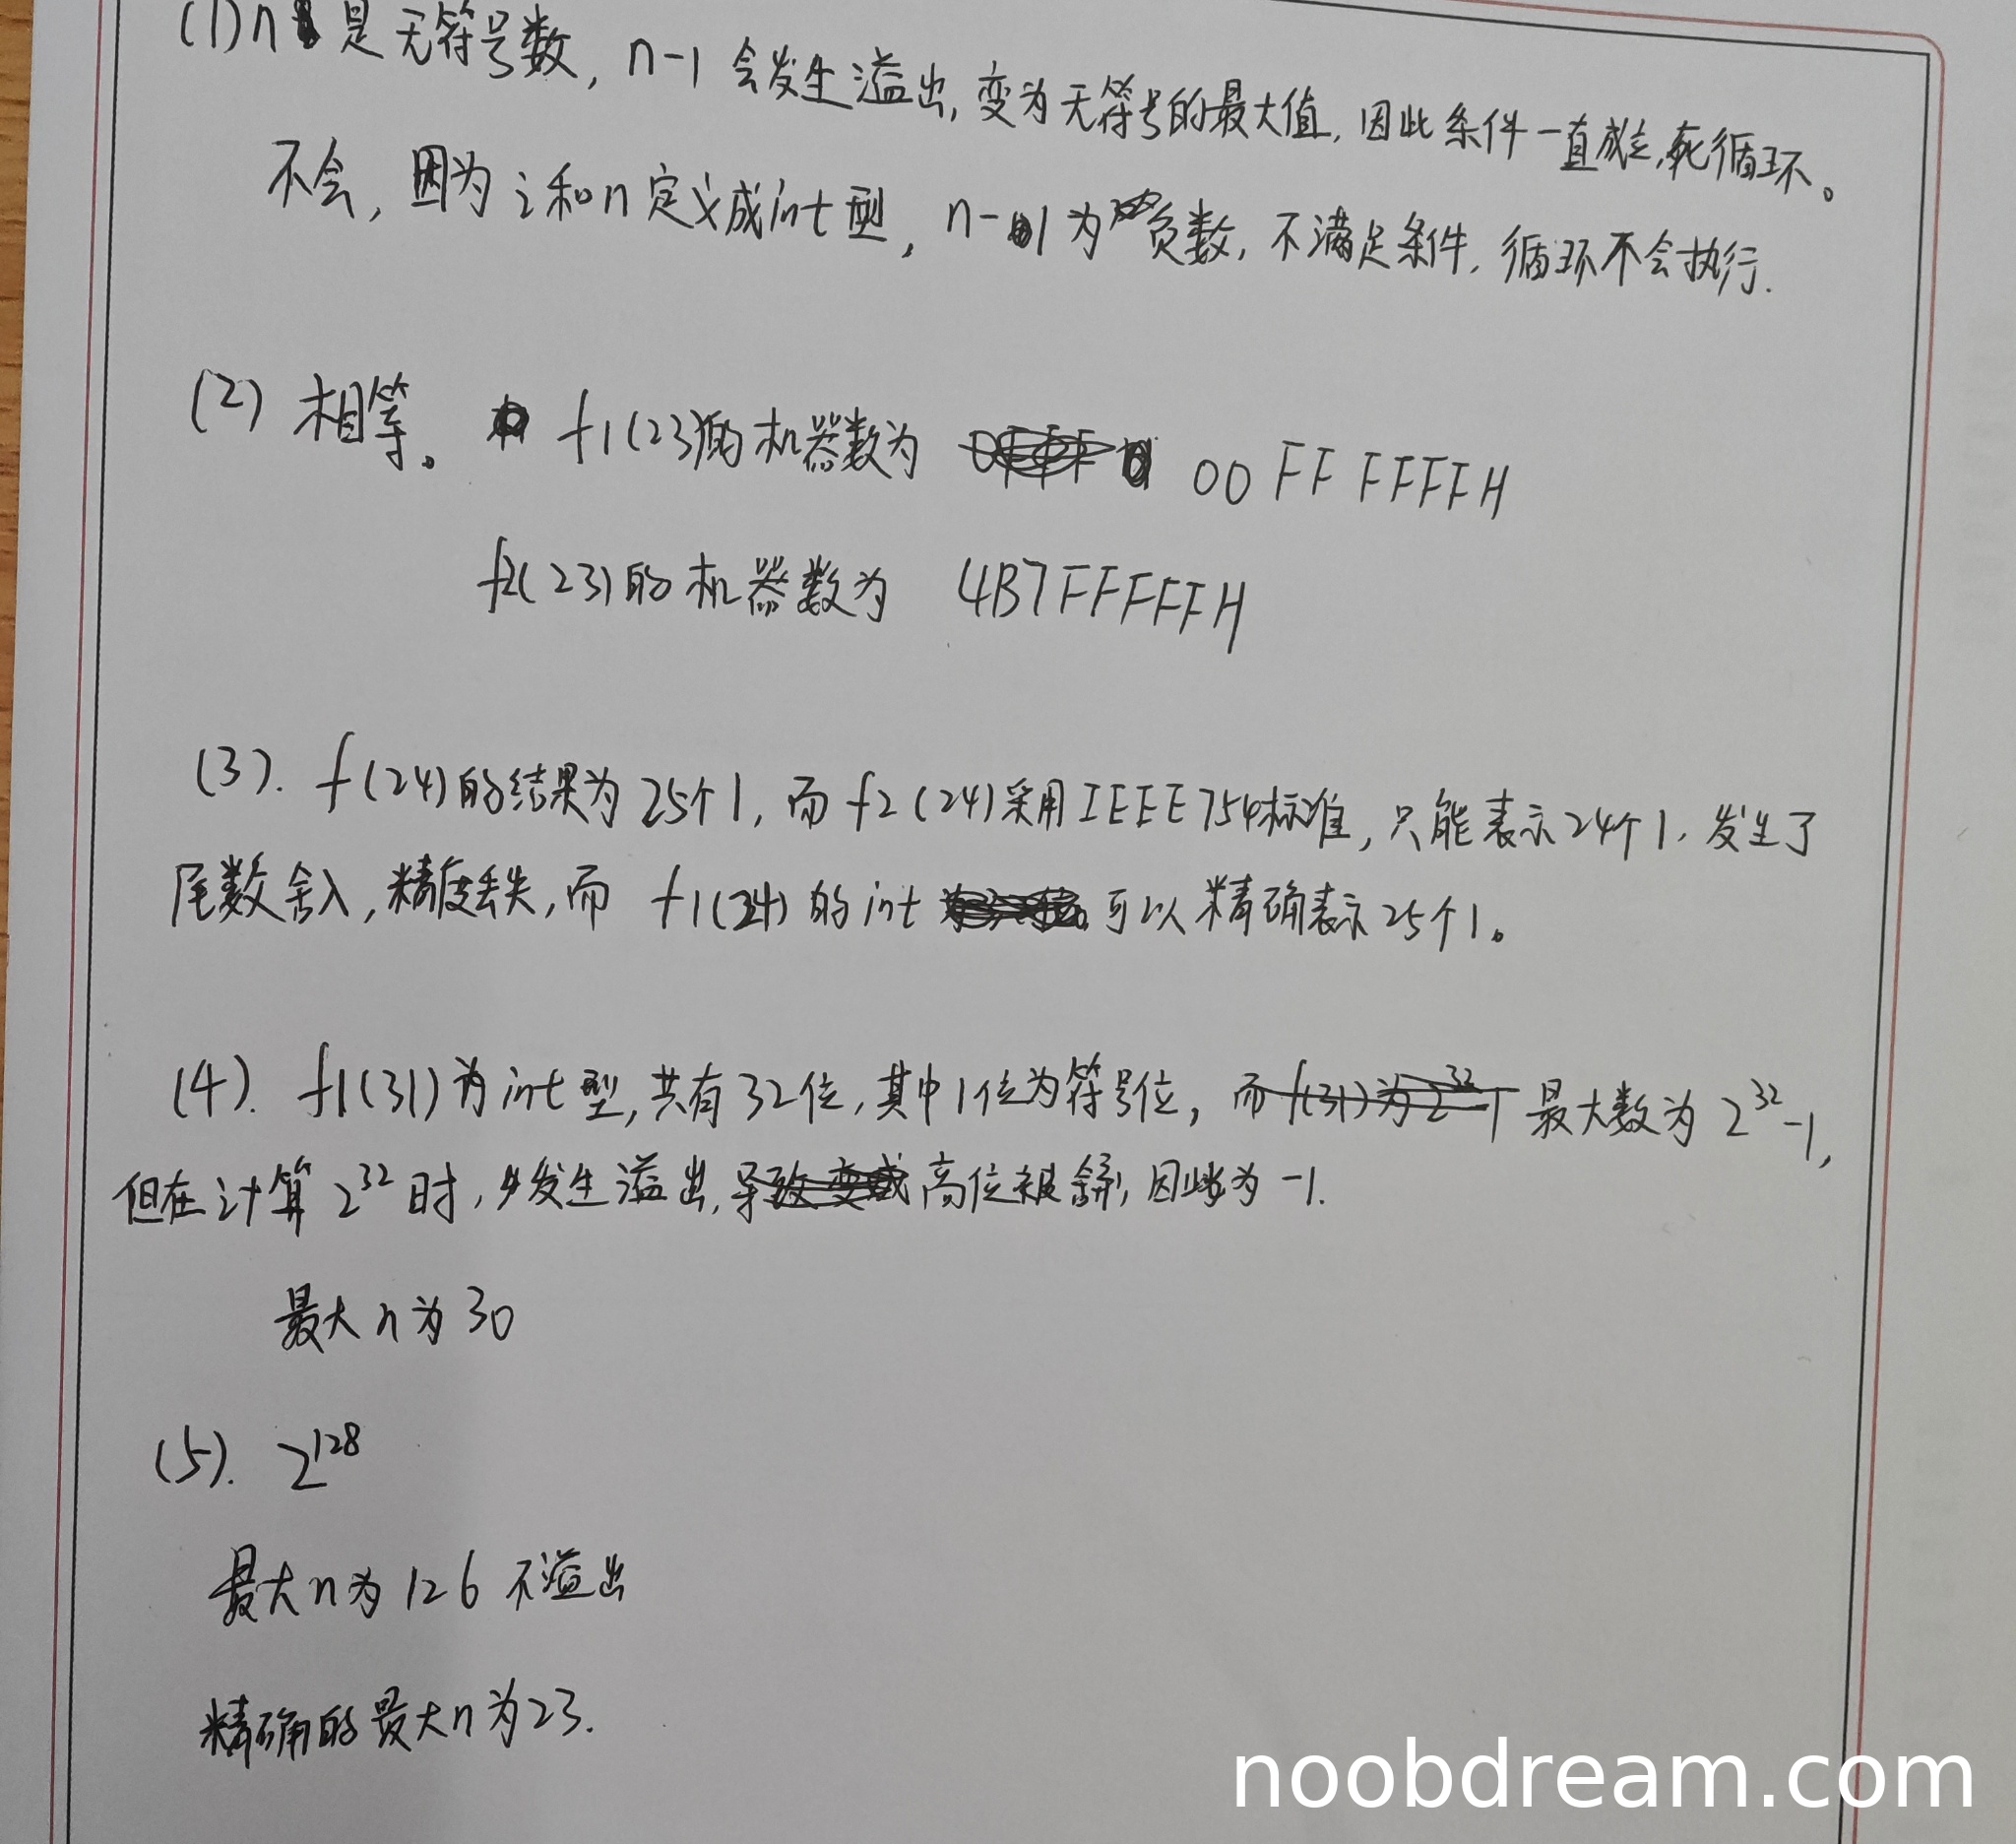 (1) n 是无符号数, n-1 会发生溢出, 变为无符号的最大值, 因此条件一直成立, 死循环。
不会, 因为 i 和 n 定义成 int 型, n-1 为负数, 不满足条件, 循环不会执行.
(2) 相等。 f1(23)的机器数为 00FF FFFFH
f2(23)的机器数为 4B7FFFFFH
(3). f(24)的结果为25个1, 而 f2(24)采用IEEE754标准, 只能表示24个1, 发生了
尾数舍入, 精度丢失, 而 f1(24)的 int 可以精确表示25个1。
(4). f1(31)为int型, 共有32位, 其中1位为符号位, 最大数为 2^32-1,
但在计算 2^32 时, 发生溢出, 高位被舍弃, 因此为 -1.
最大 n 为 30
(5). 2^128
最大n为 126 不溢出
精确的最大n为23.
noobdream.com